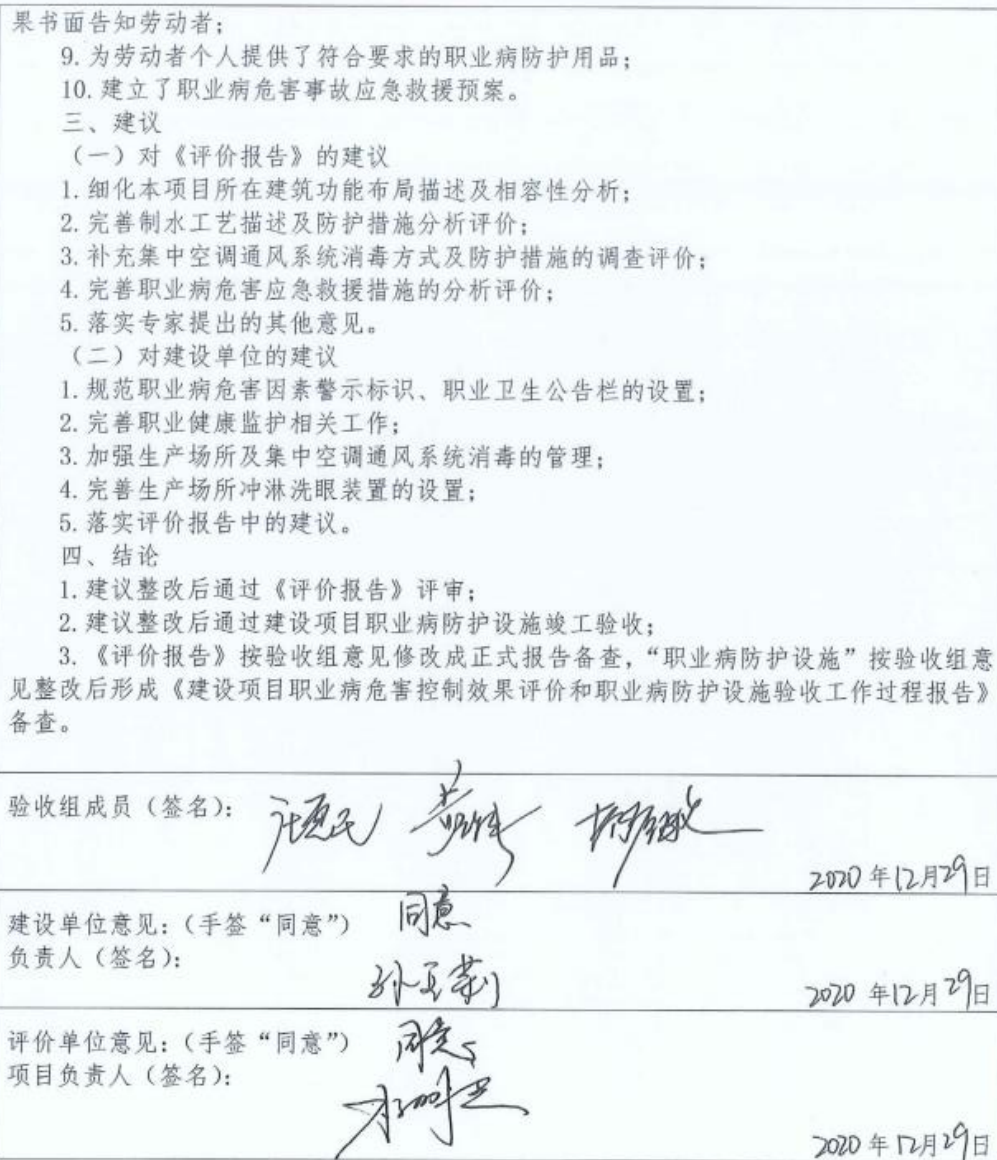 果书面告知劳动者；
9. 为劳动者个人提供了符合要求的职业病防护用品；
10. 建立了职业病危害事故应急救援预案。
三、建议
（一）对《评价报告》的建议
1. 细化本项目所在建筑功能布局描述及相容性分析；
2. 完善制水工艺描述及防护措施分析评价；
3. 补充集中空调通风系统消毒方式及防护措施的调查评价；
4. 完善职业病危害应急救援措施的分析评价；
5. 落实专家提出的其他意见。
（二）对建设单位的建议
1. 规范职业病危害因素警示标识、职业卫生公告栏的设置；
2. 完善职业健康监护相关工作；
3. 加强生产场所及集中空调通风系统消毒的管理；
4. 完善生产场所冲淋洗眼装置的设置；
5. 落实评价报告中的建议。
四、结论
1. 建议整改后通过《评价报告》评审；
2. 建议整改后通过建设项目职业病防护设施竣工验收；
3. 《评价报告》按验收组意见修改成正式报告备查，“职业病防护设施”按验收组意
见整改后形成《建设项目职业病危害控制效果评价和职业病防护设施验收工作过程报告》
备查。
验收组成员（签名）：
2020 年12月29日
建设单位意见：（手签“同意”） 同意
负责人（签名）：
2020 年12月29日
评价单位意见：（手签“同意”） 同意
项目负责人（签名）：
2020 年12月29日